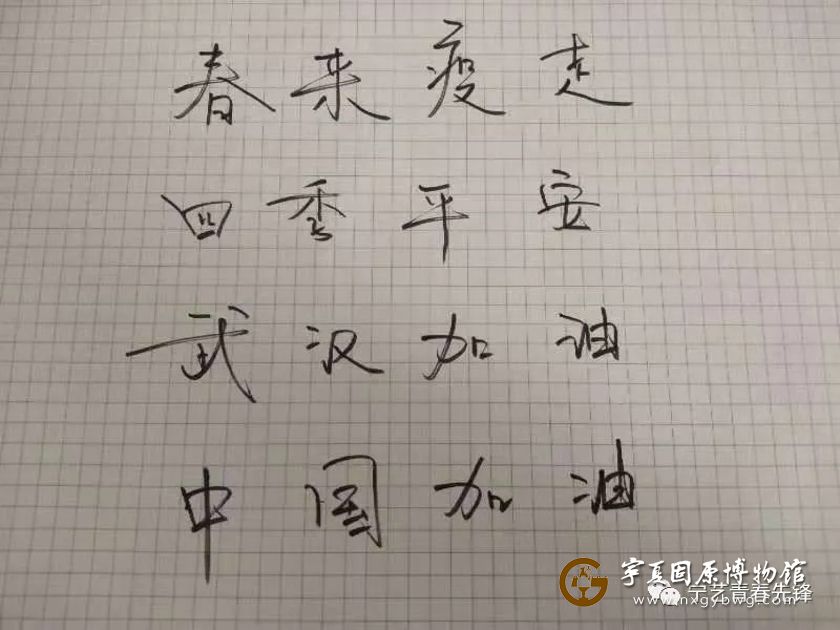 春来疫走
四季平安
武汉加油
中国加油
宁夏固原博物馆
宁艺青春先锋
www.nxgybwg.com